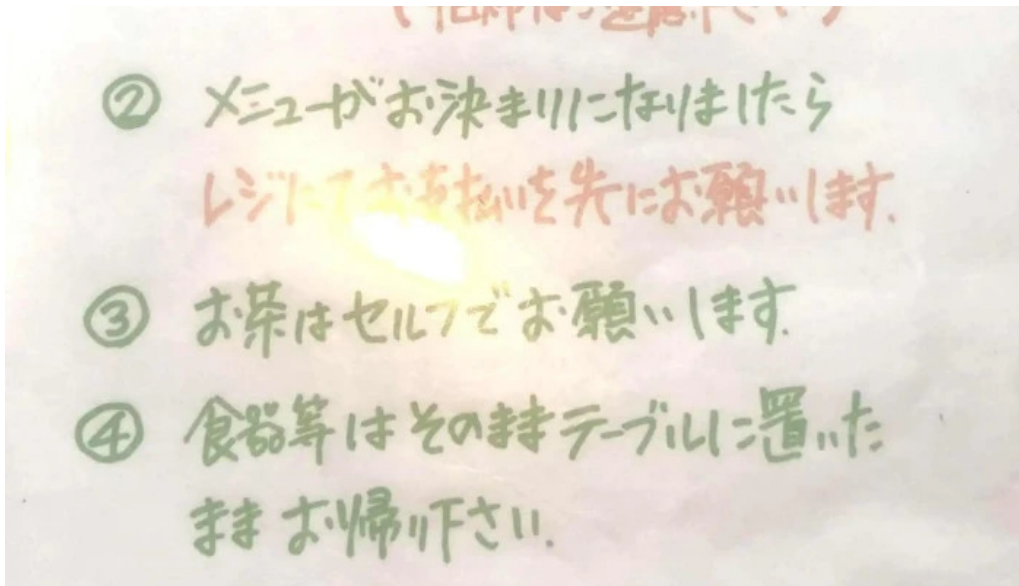 ② メニューがお決まりになりましたら
レジにてお支払いを先にお願いします.
③ お茶はセルフでお願いします.
④ 食器等はそのままテーブルに置いた
ままお帰り下さい.